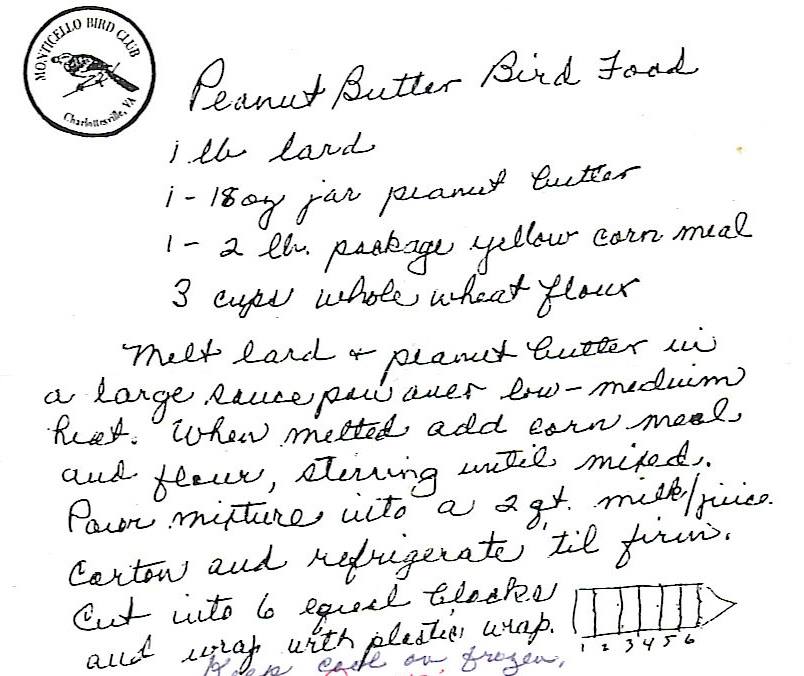 MONTICELLO BIRD CLUB
Charlottesville, VA
Peanut Butter Bird Food
1 lb lard
1 - 18 oz jar peanut butter
1 - 2 lb. package yellow corn meal
3 cups whole wheat flour
Melt lard + peanut butter in
a large sauce pan over low-medium
heat. When melted add corn meal
and flour, stirring until mixed.
Pour mixture into a 2 qt. milk/juice
carton and refrigerate 'til firm.
Cut into 6 equal blocks
and wrap with plastic wrap.
1 2 3 4 5 6
Keep cool or frozen.